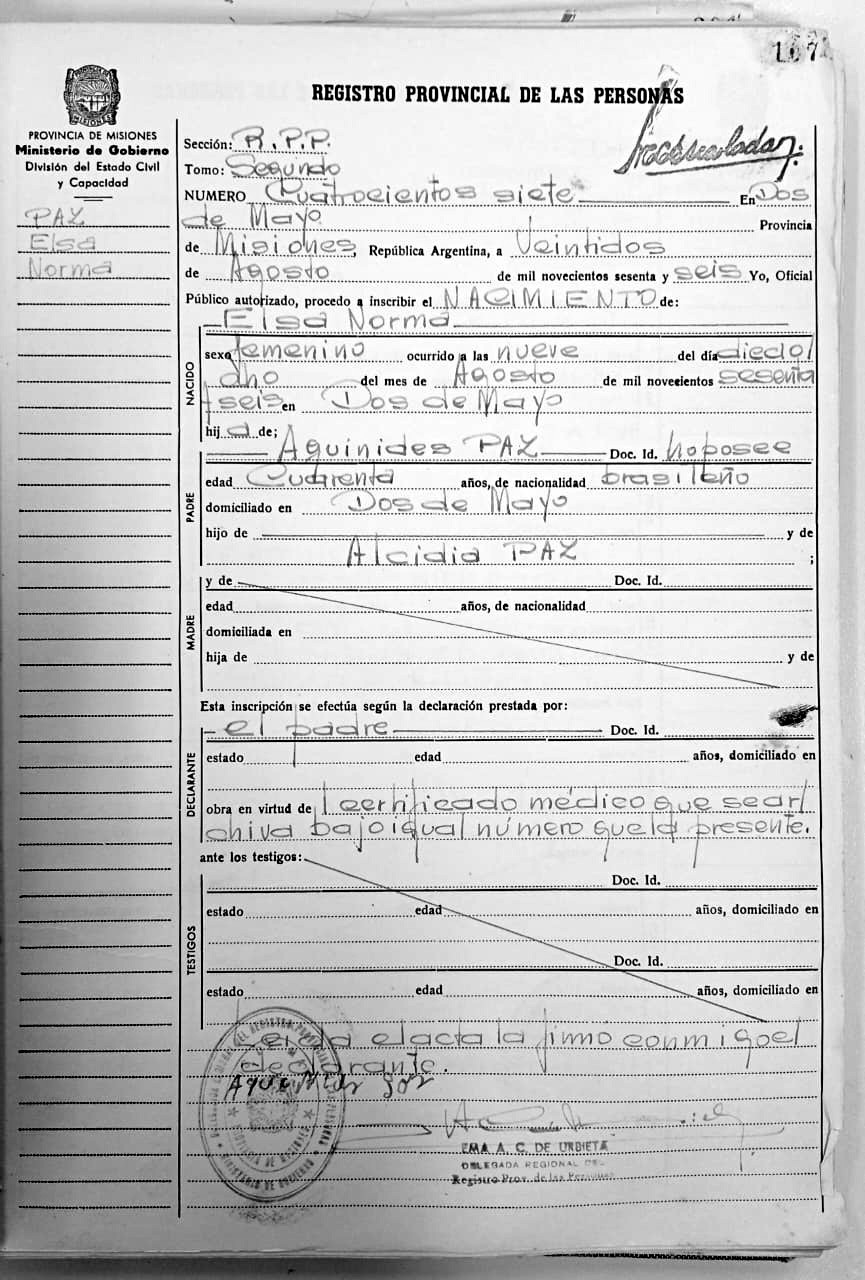 167
REGISTRO PROVINCIAL DE LAS PERSONAS
PROVINCIA DE MISIONES
Ministerio de Gobierno
División del Estado Civil
y Capacidad
PAZ
Elsa
Norma
Sección: R.P.P.
Tomo: Segundo
NUMERO Cuatrocientos siete En Dos
de Mayo Provincia
de Misiones, República Argentina, a Veintidos
de Agosto de mil novecientos sesenta y seis Yo, Oficial
Público autorizado, procedo a inscribir el NACIMIENTO de:
Elsa Norma
NACIDO
sexo femenino ocurrido a las nueve del día dieci
cho del mes de Agosto de mil novecientos sesenta
y seis en Dos de Mayo
hija de;
Aguinides PAZ Doc. Id. no posee
PADRE
edad Cuarenta años, de nacionalidad brasileño
domiciliado en Dos de Mayo
hijo de y de
Alcidia PAZ ;
MADRE
y de Doc. Id.
edad años, de nacionalidad
domiciliada en
hija de y de
Esta inscripción se efectúa según la declaración prestada por:
DECLARANTE
el padre Doc. Id.
estado edad años, domiciliado en
obra en virtud de certificado médico que se ar
chiva bajo igual número que la presente.
ante los testigos:
TESTIGOS
Doc. Id.
estado edad años, domiciliado en
Doc. Id.
estado edad años, domiciliado en
Leida el acta la firmo conmigo el
declarante.
EMA A. C. DE URBIETA
DELEGADA REGIONAL DEL
Registro Prov. de las Personas